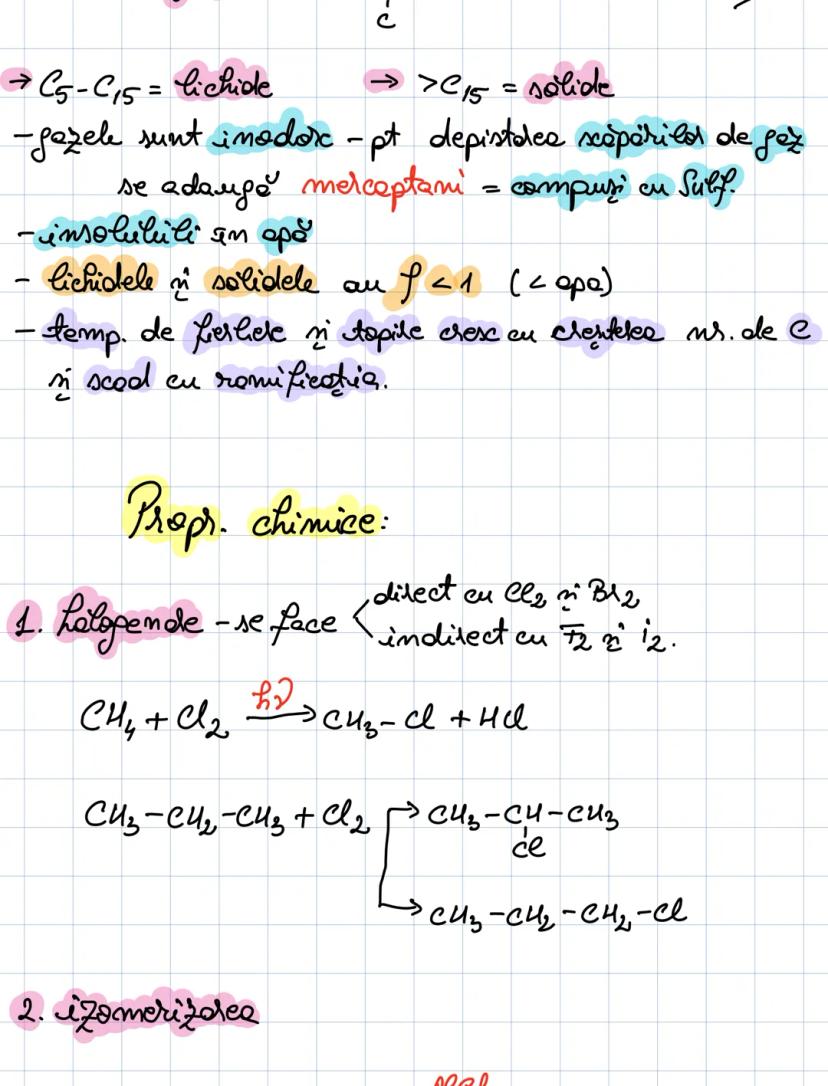 c
→ C5 - C15 = lichide → >C15 = solide
- gazele sunt inodore - pt depistarea scăpărilor de gaz
se adaugă mercaptani = compuși cu Sulf.
- insolubili în apă
- lichidele și solidele au ρ < 1 (< apa)
- temp. de fierbere și topire cresc cu creșterea nr. de C
și scad cu ramificația.
Propr. chimice:
1. halogenare - se face direct cu Cl2 și Br2
indirect cu F2 și I2.
CH4 + Cl2 hν → CH3 - Cl + HCl
CH3 - CH2 - CH3 + Cl2 → CH3 - CH - CH3
Cl
→ CH3 - CH2 - CH2 - Cl
2. izomerizarea